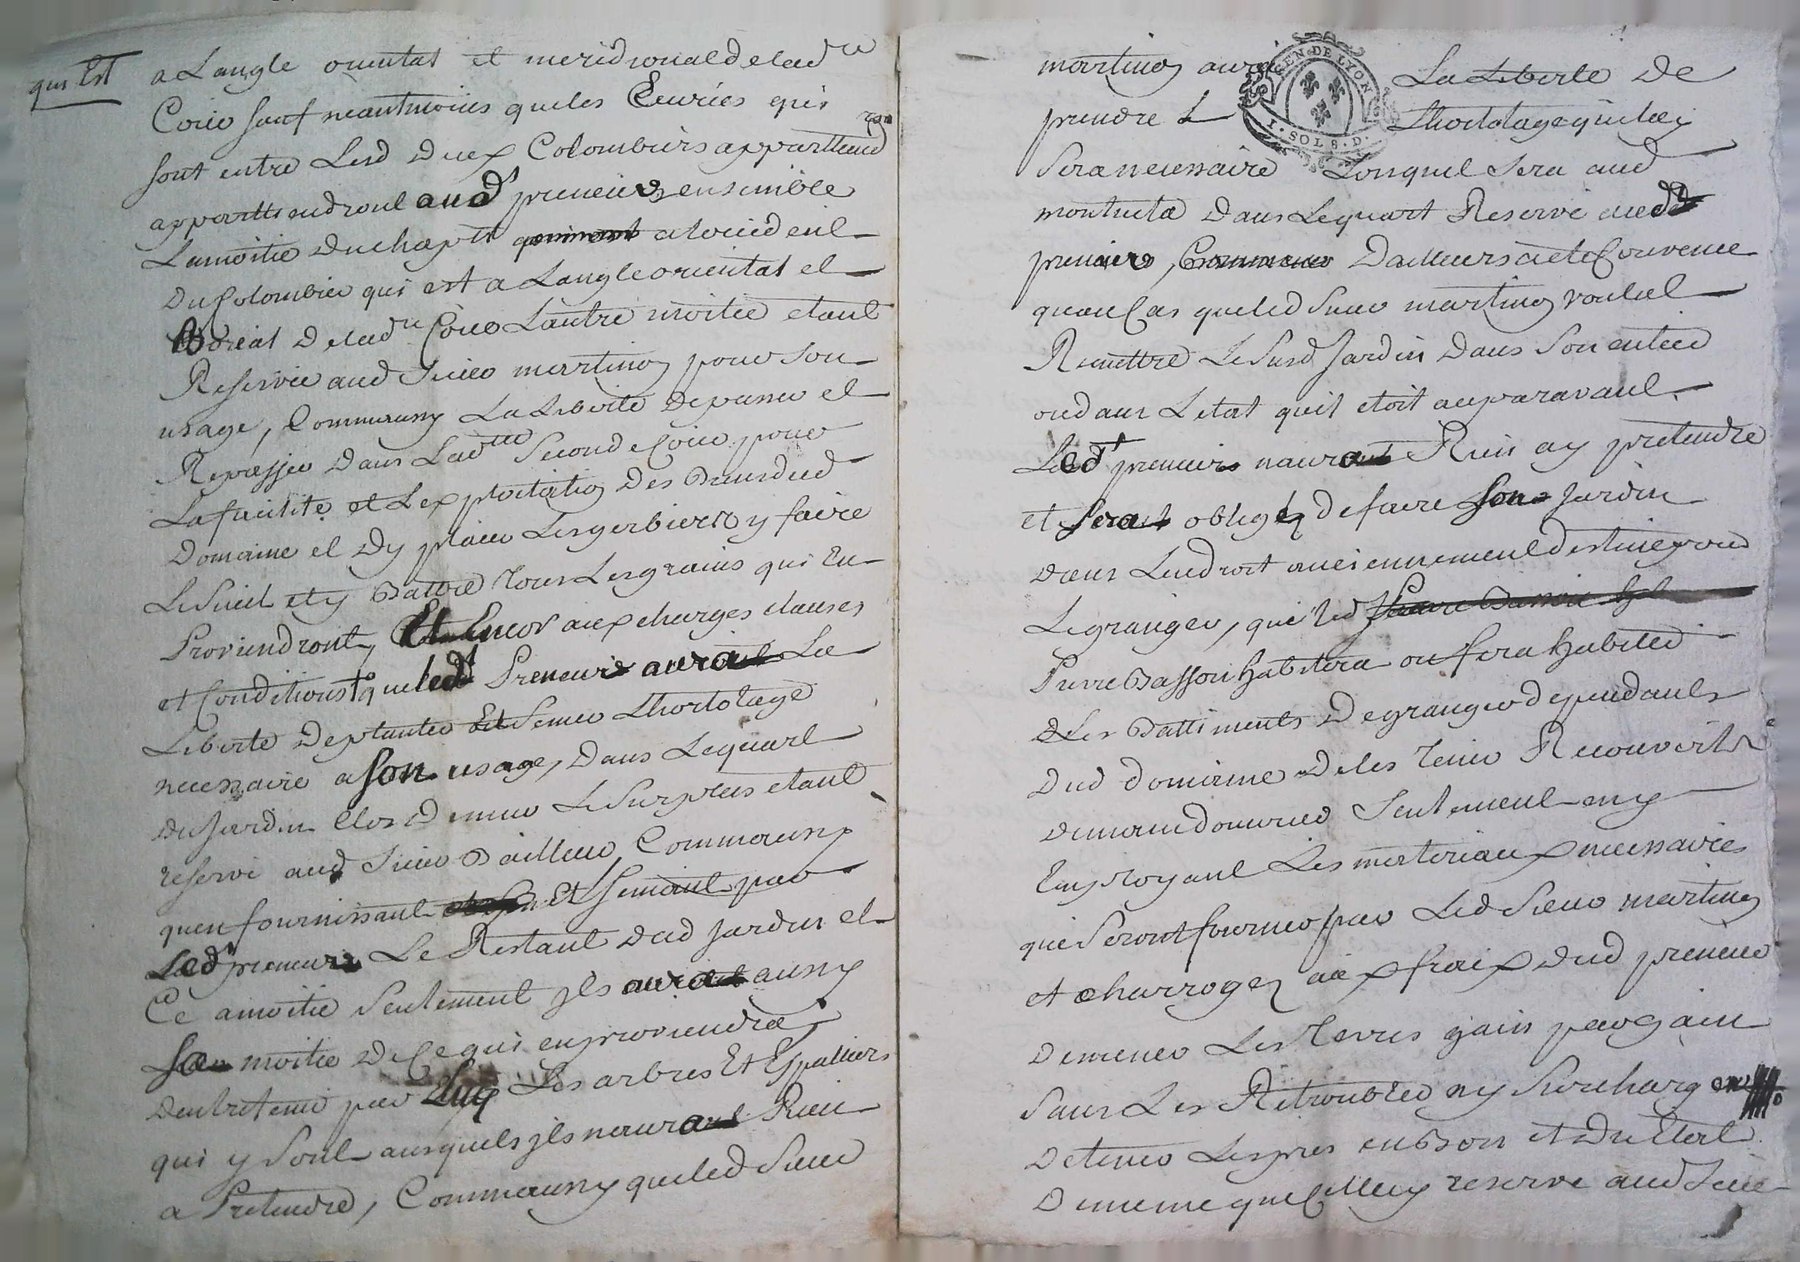 qui Est
a Langle oriental et meridional de lad.te
Cour sauf neantmoins que les Ecuries qui
sont entre Lesd deux Colombiers appartiend
appartiendront aud.t preneurs ensemble
Lamoitie du chapit a loeüil deüil
Du Colombier qui est a Langle oriental et
Boreal De lad.te Cour Lautre moitié etant
Reservée aud Sieur martinon pour son
usage, Comm'aussy La Liberté de passer et
Repasser Dans Lad.tte Seconde Cour pour
La facilité et Lexploitation Des Biens dud
Domaine et Dy placer Les gerbiers y faire
Le Sueil et y Battre tous Les grains qui En
Proviendront, Et Encor aux charges clauses
et Conditions que led.t Preneur aura La
Liberté De planter Et Semer Lhortolage
necessaire a son usage, Dans Lequart
Du Jardin Clos De mur Le Surplus etant
reservé aud Sieur Dailleur, Comm'aussy
quen fournissant Et Semant par
Led.t preneur Le Restant Dud Jardin et
Ce amoitié Seulement Ils aura aussy
Sa moitié De Ce qui en proviendra,
Dentretenir par Luy Les arbres Et Espalliers
qui y Sont ausquels Ils naura Rien
a Pretendre, Comm'aussy que led Sieur
martinon aura La Liberté De
prendre L Lhortolage qui luy
Sera necessaire Lorsquil Sera aud
montula Dans Lequart Reservé aud.t
preneur, Dailleurs a eté Convenu
quau Cas que led Sieur martinon voulut
Remettre Le Susd Jardin Dans Son entier
ou dans Letat quil etoit auparavant
Led.t preneur naura Rien a y pretendre
et Sera obligé de faire Son Jardin
dans Lendroit anciennement destiné pour
Le granger, que led
Pierre Basson habitera ou fera habiter
Les Battiments De granger dependants
Dud domaine De les tenir Recouverts
De main douvrier Seulement en y
Employant Les materiaux necessaires
qui Seront fournis par Led Sieur martinon
et charrogez aux fraix Dud preneur
De mener Les Terres gain par gain
Sans Les Retroubler ny Surcharger
De tenir Les prés en bon et Du Etat
De meme que Celluy reservé aud Sieur
GEN. DE LYON
I. SOL 8. D.